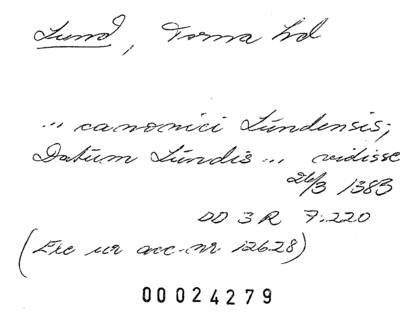 Lund, Torna hd
... canonici Lundensis;
Datum Lundis ... vidisse
26/3 1383
DD 3 R 7:220
(Exc ur acc-nr 12628)
00024279